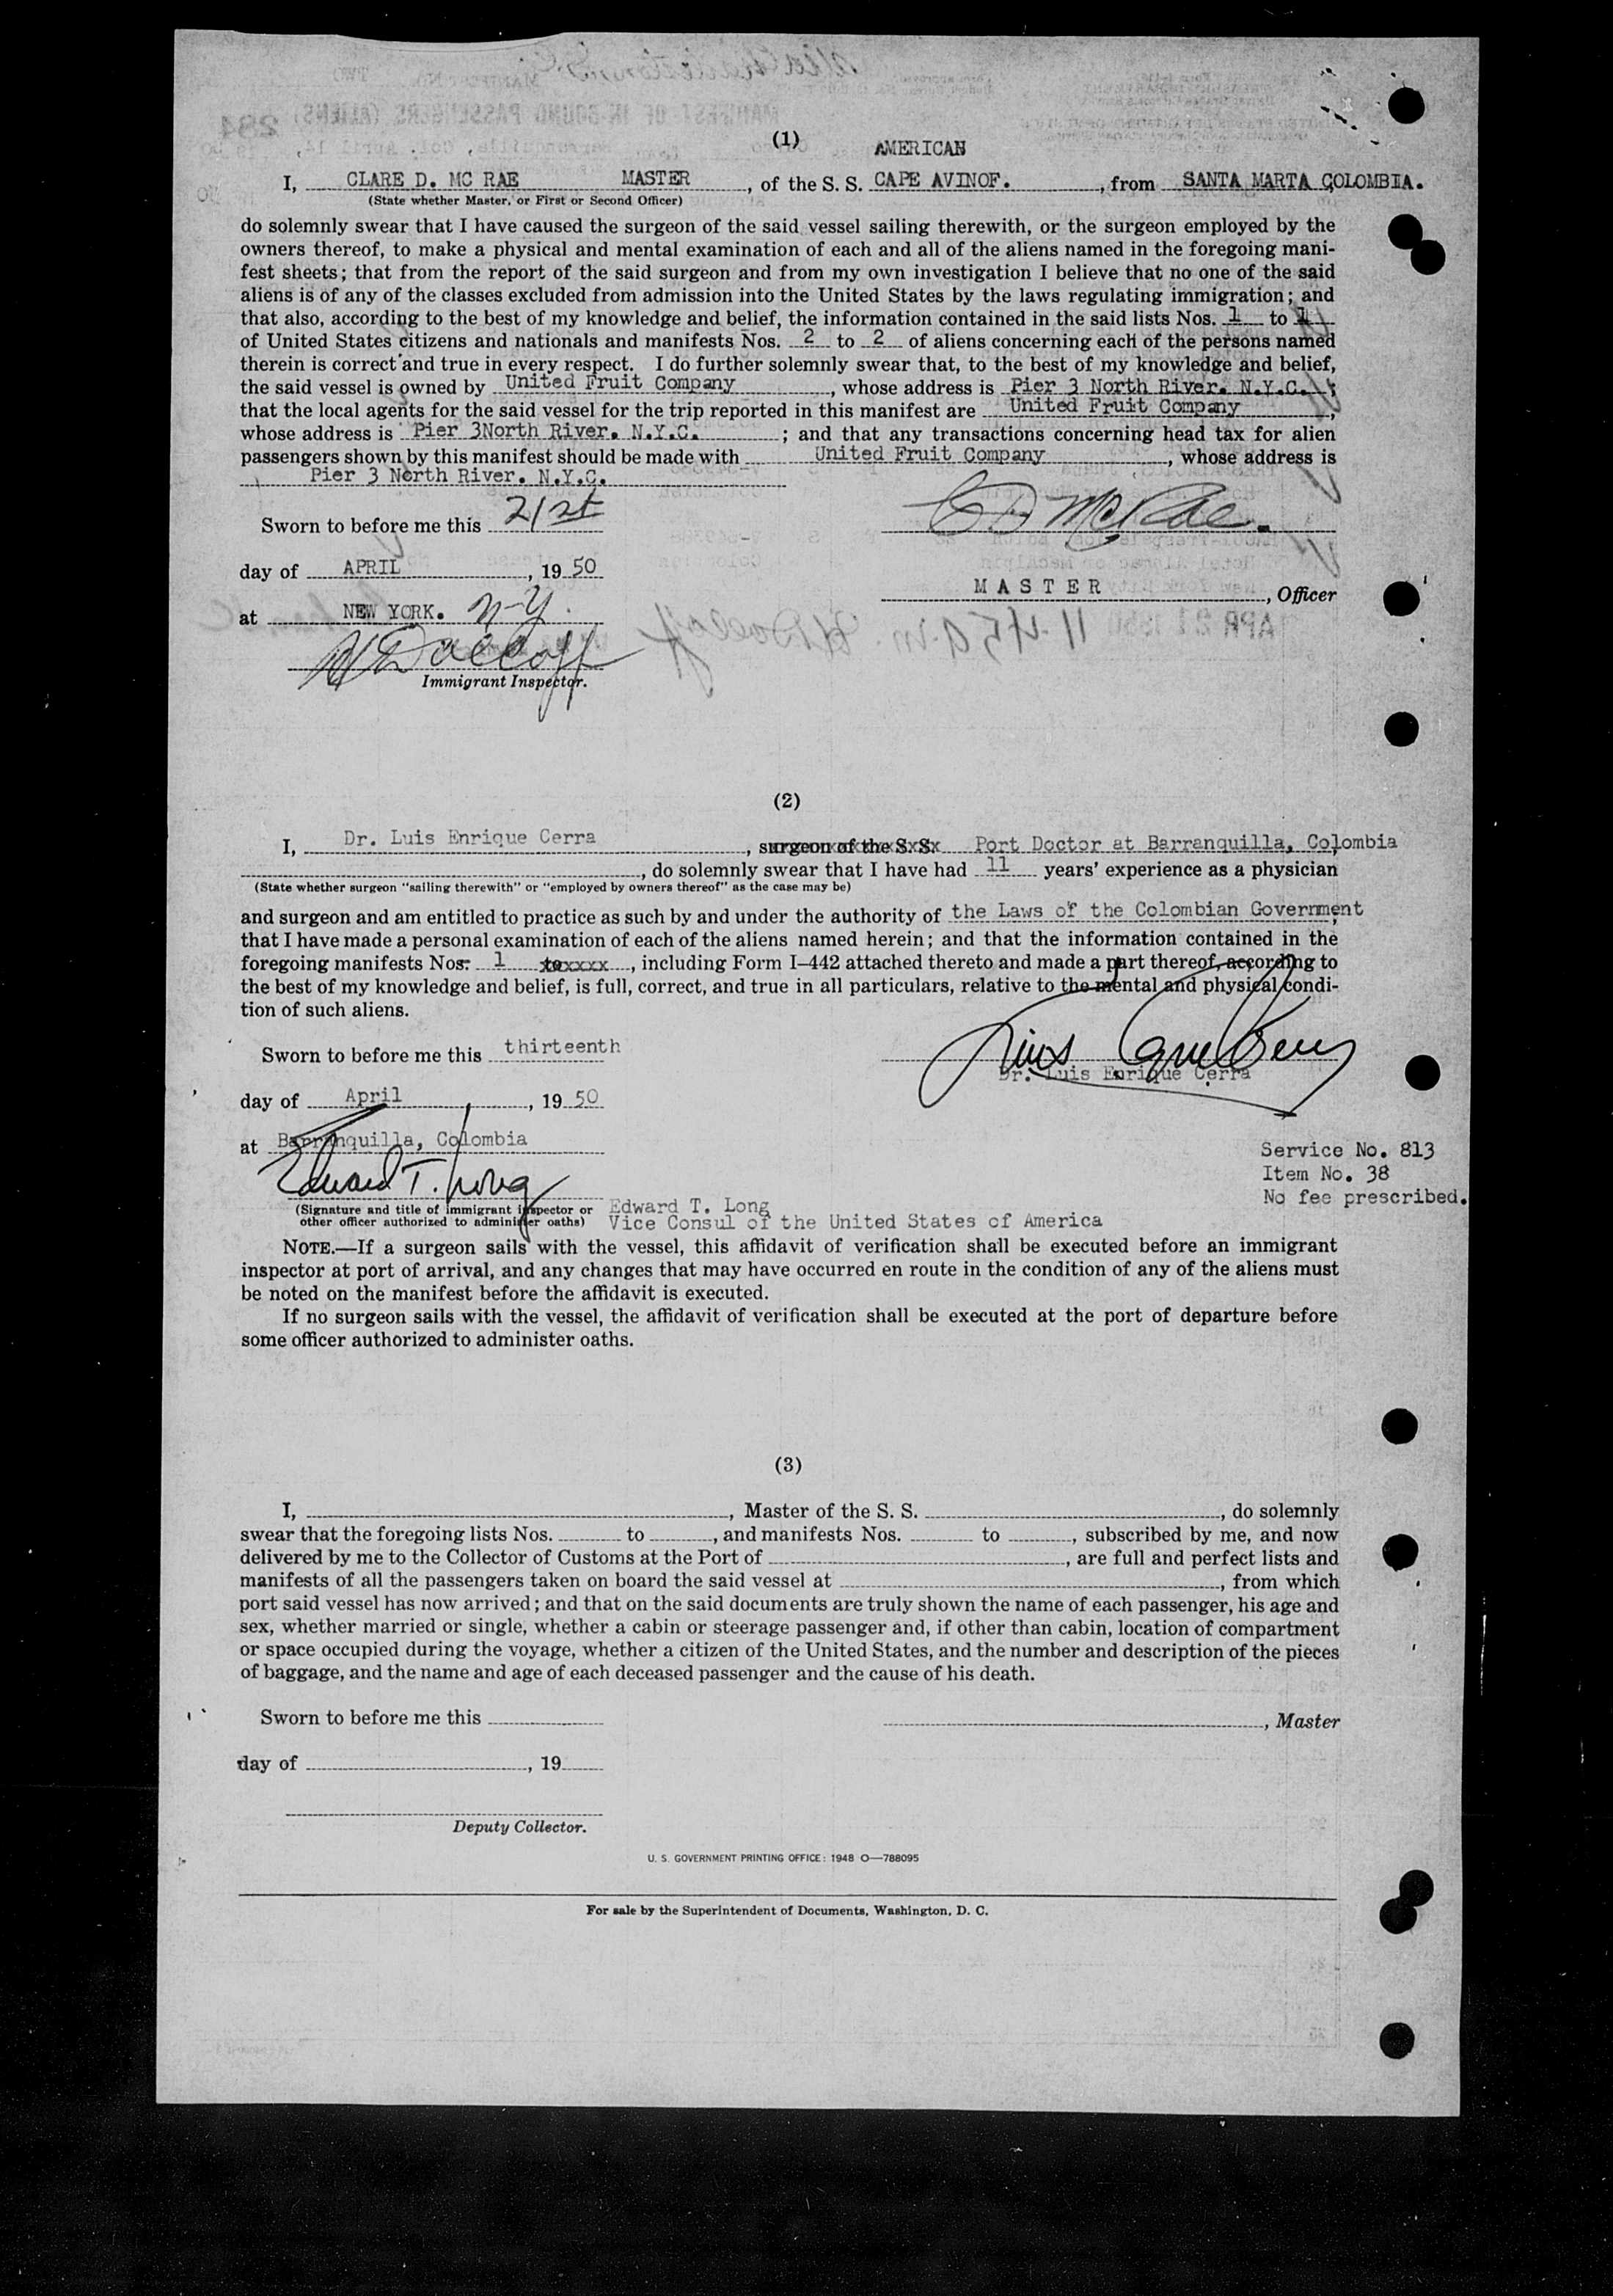 (1)
AMERICAN
I, CLARE D. MC RAE MASTER, of the S. S. CAPE AVINOF., from SANTA MARTA COLOMBIA.
(State whether Master, or First or Second Officer)
do solemnly swear that I have caused the surgeon of the said vessel sailing therewith, or the surgeon employed by the
owners thereof, to make a physical and mental examination of each and all of the aliens named in the foregoing mani-
fest sheets; that from the report of the said surgeon and from my own investigation I believe that no one of the said
aliens is of any of the classes excluded from admission into the United States by the laws regulating immigration; and
that also, according to the best of my knowledge and belief, the information contained in the said lists Nos. 1 to 1
of United States citizens and nationals and manifests Nos. 2 to 2 of aliens concerning each of the persons named
therein is correct and true in every respect. I do further solemnly swear that, to the best of my knowledge and belief,
the said vessel is owned by United Fruit Company, whose address is Pier 3 North River. N.Y.C.;
that the local agents for the said vessel for the trip reported in this manifest are United Fruit Company,
whose address is Pier 3North River. N.Y.C.; and that any transactions concerning head tax for alien
passengers shown by this manifest should be made with United Fruit Company, whose address is
Pier 3 North River. N.Y.C.
Sworn to before me this 21st
C D McRae.
day of APRIL, 19 50
MASTER, Officer
at NEW YORK. N-Y.
Immigrant Inspector.
(2)
I, Dr. Luis Enrique Cerra, surgeon of the S. S. Port Doctor at Barranquilla, Colombia
, do solemnly swear that I have had 11 years' experience as a physician
(State whether surgeon "sailing therewith" or "employed by owners thereof" as the case may be)
and surgeon and am entitled to practice as such by and under the authority of the Laws of the Colombian Government;
that I have made a personal examination of each of the aliens named herein; and that the information contained in the
foregoing manifests Nos. 1 to xxxx, including Form I–442 attached thereto and made a part thereof, according to
the best of my knowledge and belief, is full, correct, and true in all particulars, relative to the mental and physical condi-
tion of such aliens.
Sworn to before me this thirteenth
Dr. Luis Enrique Cerra
day of April, 19 50
at Barranquilla, Colombia
Edward T. Long
Service No. 813
Item No. 38
No fee prescribed.
(Signature and title of immigrant inspector or
other officer authorized to administer oaths)
Edward T. Long
Vice Consul of the United States of America
NOTE.—If a surgeon sails with the vessel, this affidavit of verification shall be executed before an immigrant
inspector at port of arrival, and any changes that may have occurred en route in the condition of any of the aliens must
be noted on the manifest before the affidavit is executed.
If no surgeon sails with the vessel, the affidavit of verification shall be executed at the port of departure before
some officer authorized to administer oaths.
(3)
I, , Master of the S. S. , do solemnly
swear that the foregoing lists Nos. to , and manifests Nos. to , subscribed by me, and now
delivered by me to the Collector of Customs at the Port of , are full and perfect lists and
manifests of all the passengers taken on board the said vessel at , from which
port said vessel has now arrived; and that on the said documents are truly shown the name of each passenger, his age and
sex, whether married or single, whether a cabin or steerage passenger and, if other than cabin, location of compartment
or space occupied during the voyage, whether a citizen of the United States, and the number and description of the pieces
of baggage, and the name and age of each deceased passenger and the cause of his death.
Sworn to before me this
, Master
day of , 19
Deputy Collector.
U. S. GOVERNMENT PRINTING OFFICE: 1948 O—788095
For sale by the Superintendent of Documents, Washington, D. C.